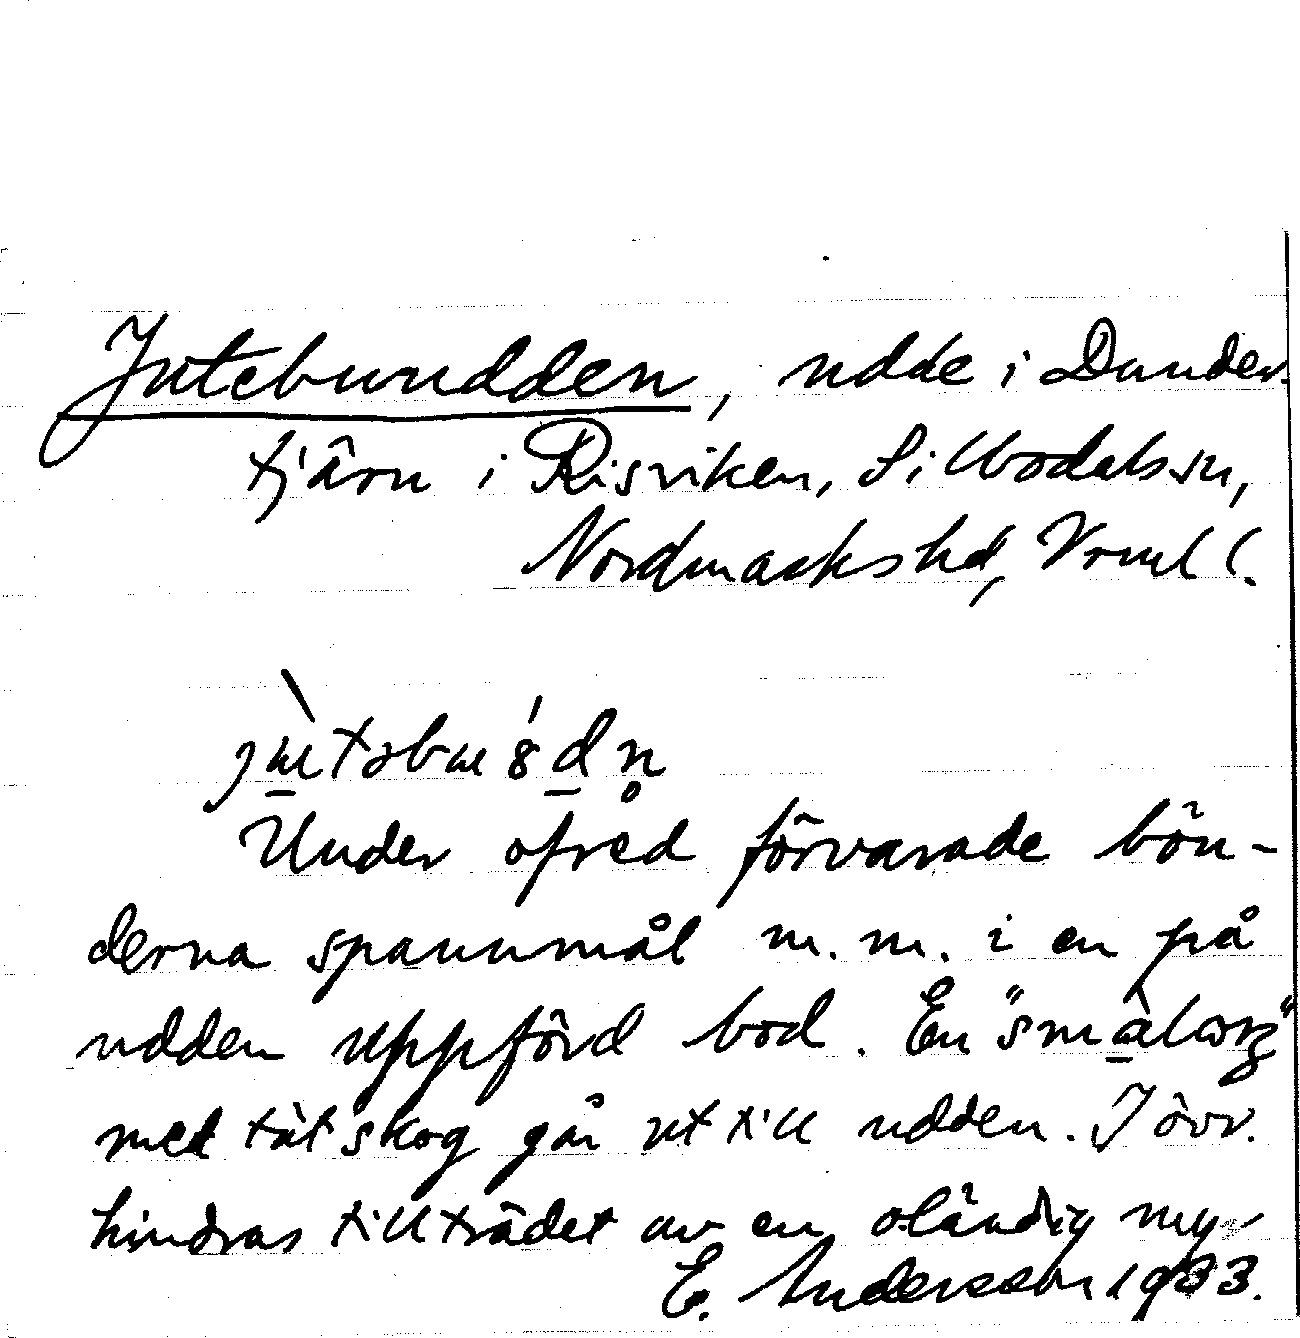 Jutebuudden, udde i Dunder-
tjärn i Risviken, Sillbodals sn,
Nordmarks hd, Vrml l.
Under ofred förvarade bön-
derna spannmål m. m. i en på
udden uppförd bod. En "smal
med tät skog går ut till udden. I övr.
hindras tillträdet av en oländig myr
E. Andersson 1933.